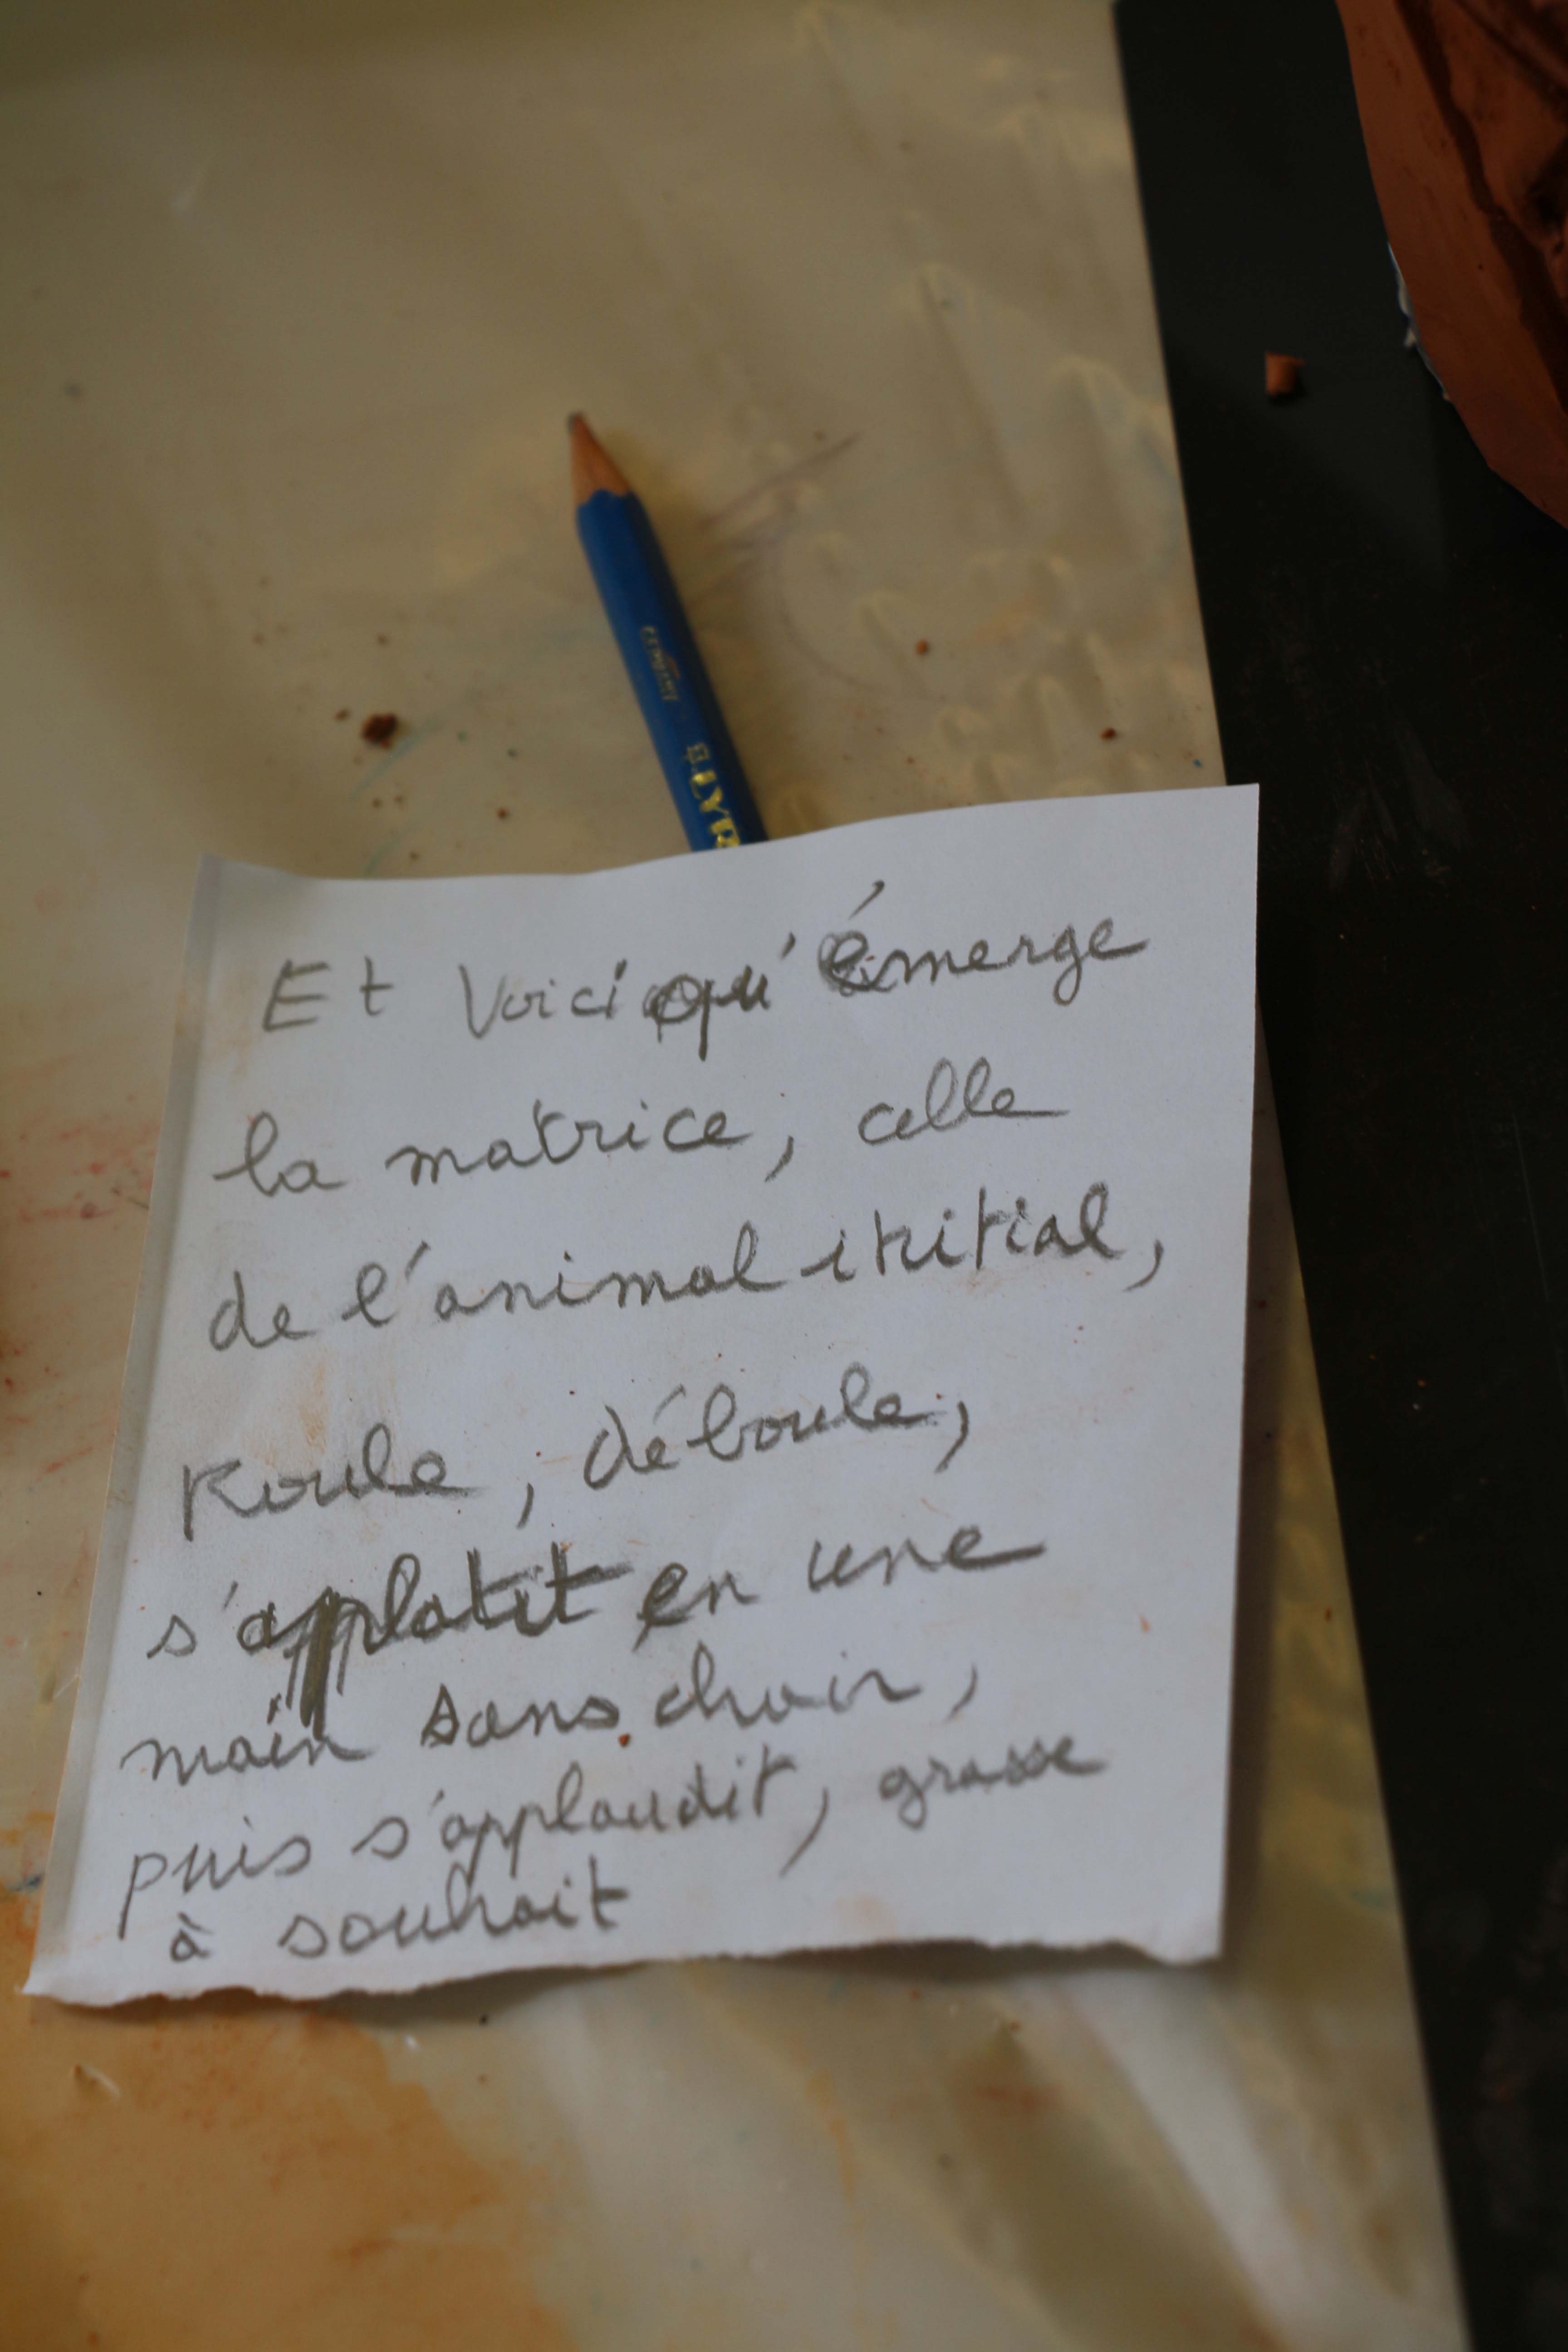 LYR
Et Voici qu'émerge
la matrice, celle
de l'animal initial,
Roule, déboule,
s'applatit en une
main sans choir,
puis s'applaudit, grasse
à souhait